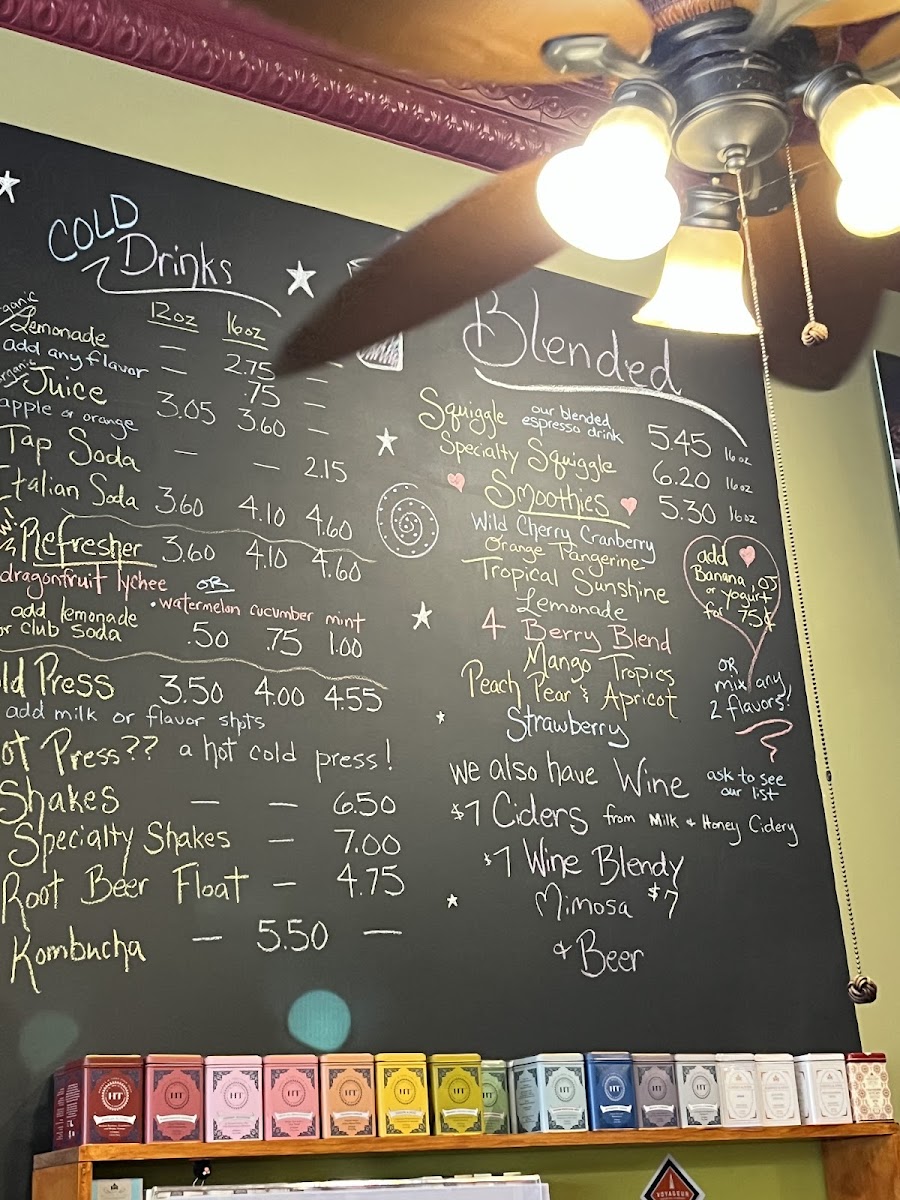 COLD
Drinks
12oz 16oz
Lemonade — 2.75 —
add any flavor — .75 —
Juice 3.05 3.60 —
apple or orange
Tap Soda — — 2.15
Italian Soda 3.60 4.10 4.60
Refresher 3.60 4.10 4.60
dragonfruit lychee OR
• watermelon cucumber mint
add lemonade
or club soda .50 .75 1.00
ld Press 3.50 4.00 4.55
add milk or flavor shots
ot Press?? a hot cold press!
Shakes — — 6.50
Specialty Shakes — 7.00
Root Beer Float — 4.75
Kombucha — 5.50 —
Blended
Squiggle our blended espresso drink 5.45 16oz
Specialty Squiggle 6.20 16oz
Smoothies 5.30 16oz
Wild Cherry Cranberry
Orange Tangerine
Tropical Sunshine
Lemonade
4 Berry Blend
Mango Tropics
Peach Pear & Apricot
Strawberry
add
Banana, OJ
or yogurt
for 75¢
OR
mix any
2 flavors!
we also have Wine ask to see our list
$7 Ciders from Milk & Honey Cidery
$7 Wine Blendy
Mimosa $7
& Beer
HT
HT
HT
HT
HT
HT
HT
HT
HT
HT
HT
VOYAGEUR